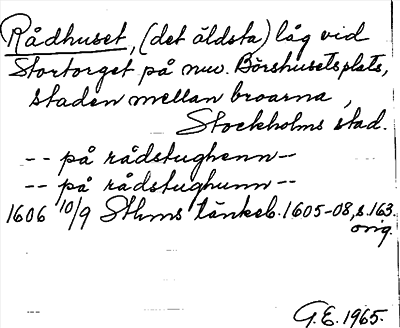 Rådhuset, (det äldsta) låg vid
Stortorget på nuv. Börshusets plats,
staden mellan broarna,
Stockholms stad.
-- på rådstughenn --
-- på rådstughunn --
1606 10/9 Sthms tänkeb. 1605-08, s. 163.
orig.
G.E. 1965.